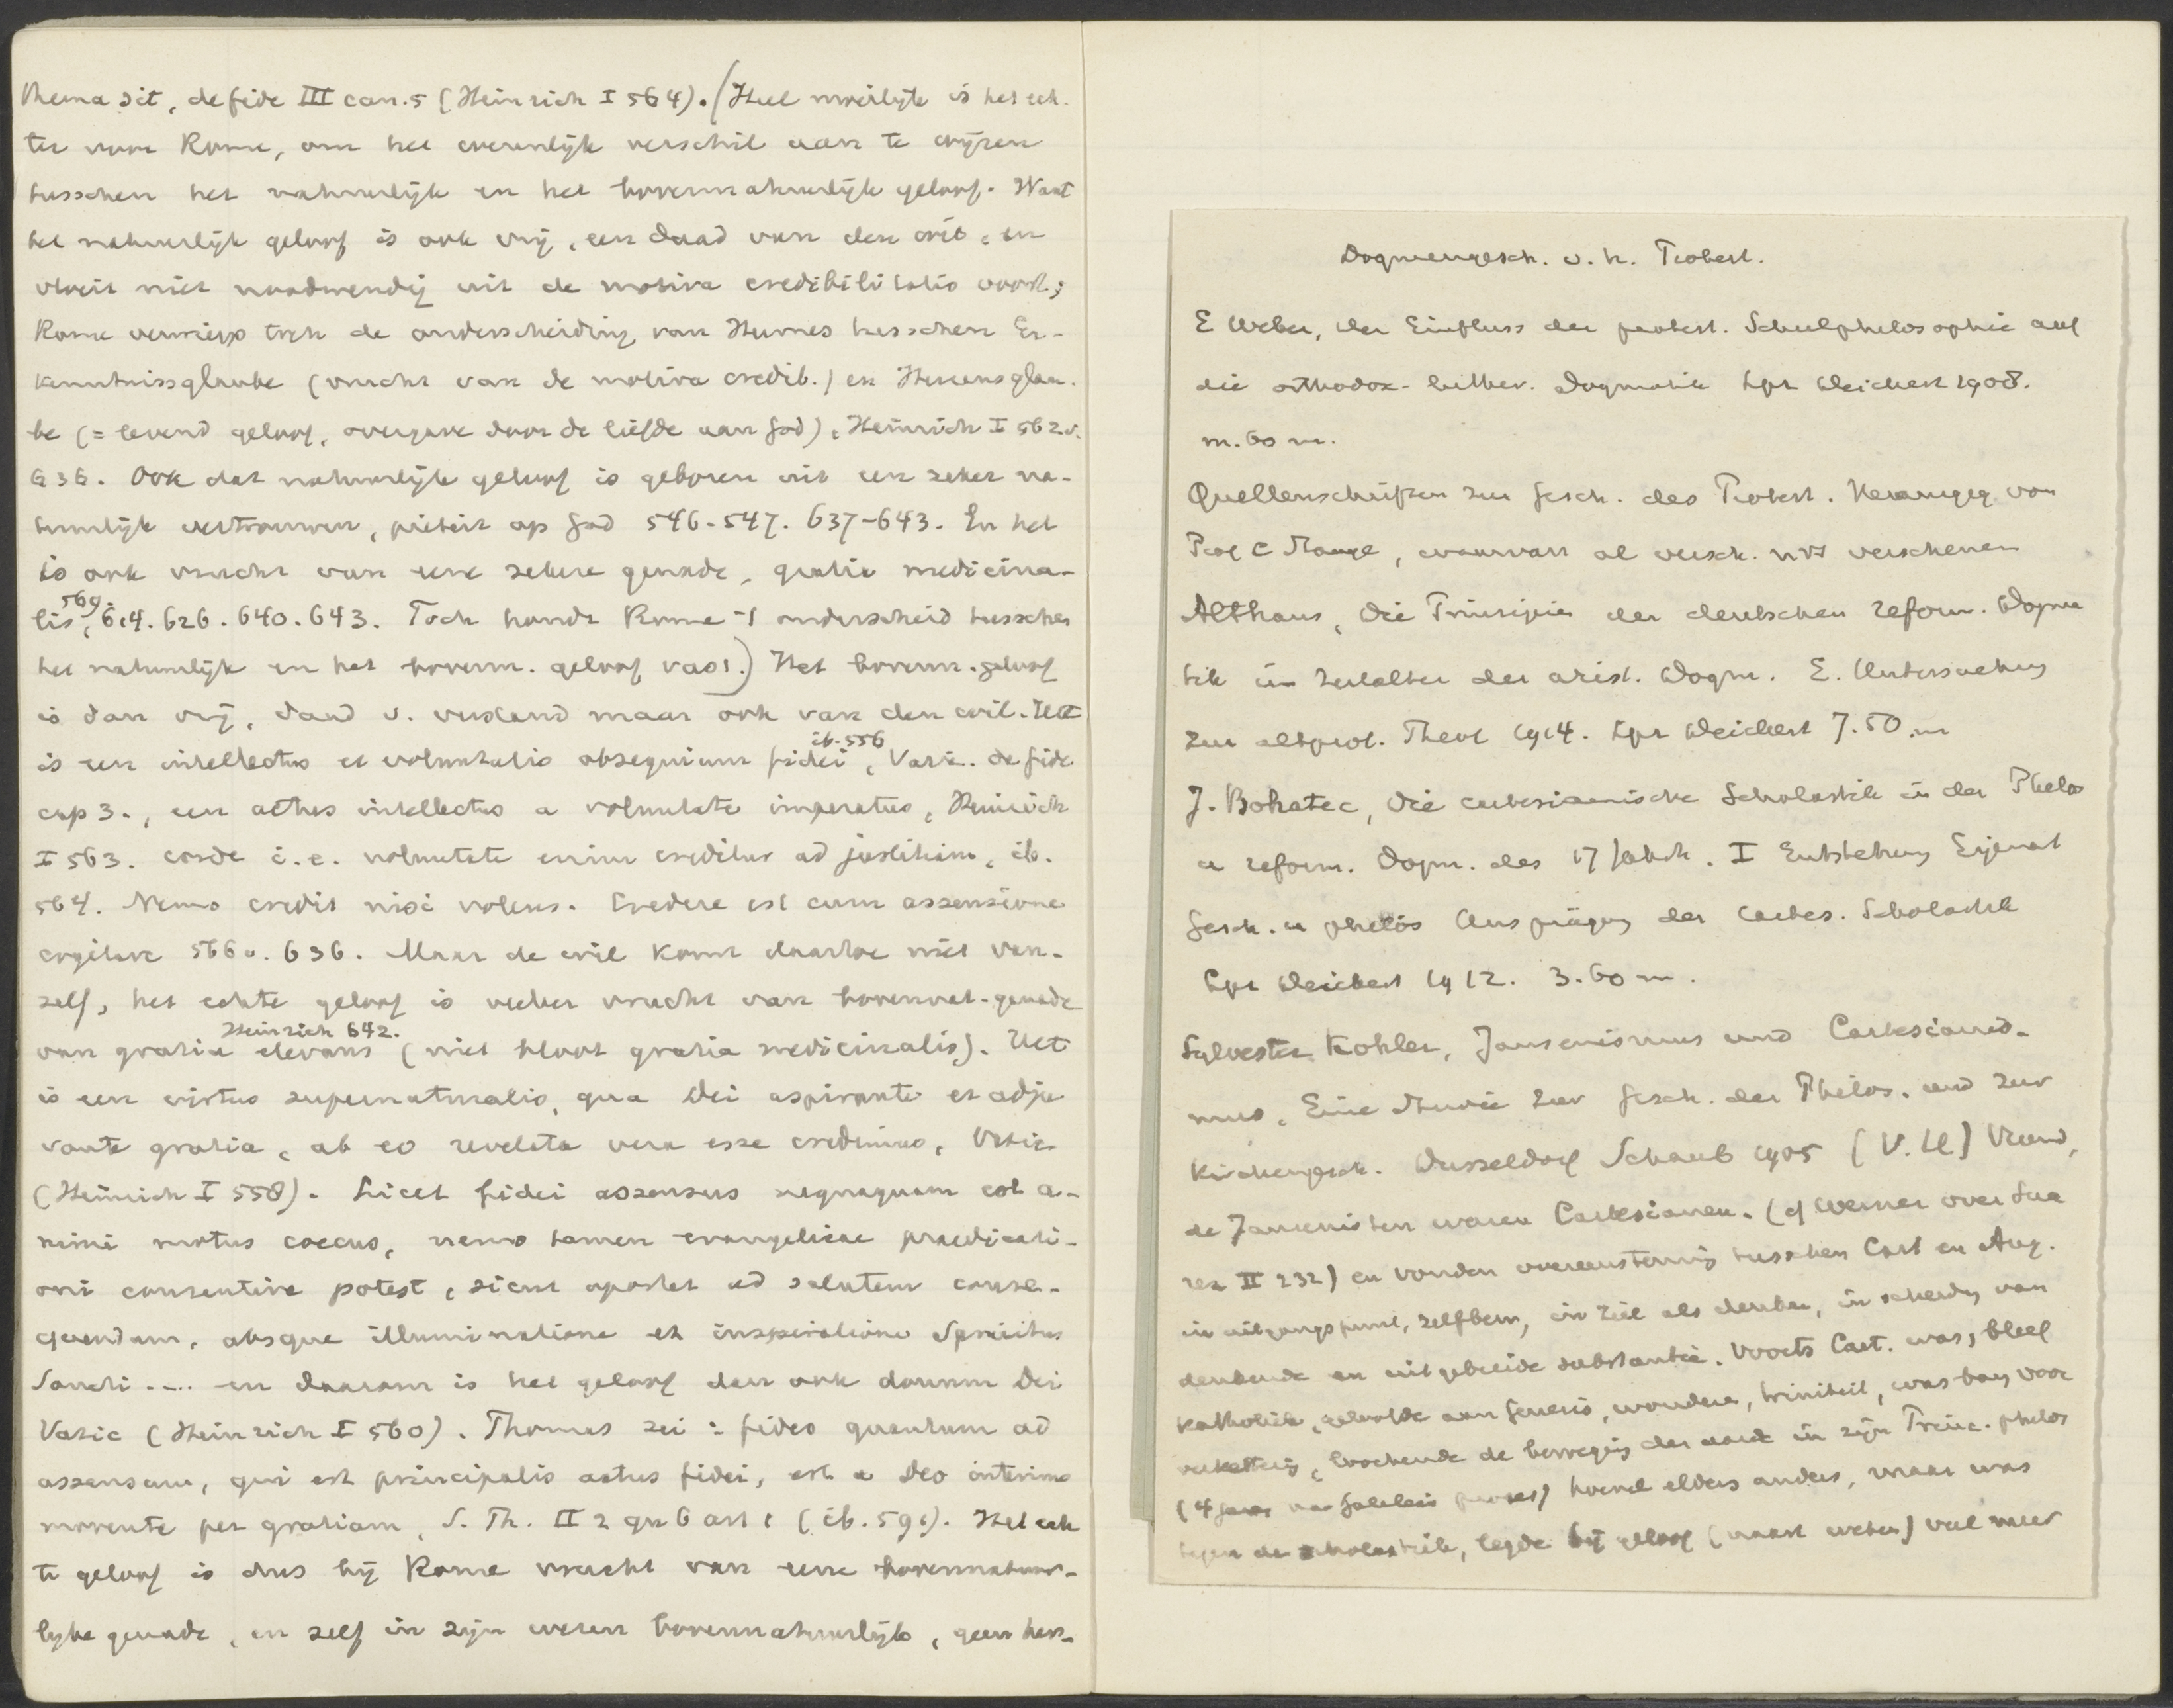 thema sit, de fide III can. 5 (Heinrich I 564). (Heel moeilijk is het ech-
ter voor Rome, om het eigenlijk verschil aan te wijzen
tusschen het natuurlijk en het bovennatuurlijk geloof. Want
het natuurlijk geloof is ook vrij, een daad van den wil, en
vloeit niet noodwendig uit de motiva credibilitatis voort;
Rome verwierp toch de onderscheiding van Hermes tusschen Er-
kenntnissglaube (vrucht van de motiva credib.) en Herzensglau-
be (= levend geloof, overgave door de liefde aan God), Heinrich I 562 v.
636. Ook dat natuurlijk geloof is geboren uit een zeker na-
tuurlijk vertrouwen, pieteit op God 546-547. 637-643. En het
is ook vrucht van eene zekere genade, gratia medicina-
569.
lis, 614. 626. 640. 643. Toch houdt Rome 't onderscheid tusschen
het natuurlijk en het bovenn. geloof vast.) Het bovenn. geloof
is dan vrij, daad v. verstand maar ook van den wil. Het
ib. 556
is een intellectus et voluntatis obsequium fidei, Vatic. de fide
cap 3., een actus intellectus a voluntate imperatus, Heinrich
I 563. corde i. e. voluntate enim creditur ad justitiam, ib.
564. Nemo credit nisi volens. Credere est cum assensione
cogitare 566 v. 636. Maar de wil komt daartoe niet van-
zelf, het echte geloof is veeleer vrucht van bovennat. genade
Heinrich 642.
van gratia elevans (niet bloot gratia medicinalis). Het
is een virtus supernaturalis, qua Dei aspirante et adju
vante gratia, ab eo revelata vera esse credimus, Vatic.
(Heinrich I 558). Licet fidei assensus nequaquam est a-
nimi motus coecus, nemo tamen evangelicae praedicati-
oni consentire potest, sicut oportet ad salutem conse-
quendam, absque illuminatione et inspiratione Spiritus
Sancti .... en daarom is het geloof dan ook donum Dei
Vatic (Heinrich I 560). Thomas zei: fides quantum ad
assensum, qui est principalis actus fidei, est a Deo interius
movente per gratiam, S. Th. II 2 qu 6 art 1 (ib. 591). Het ech
te geloof is dus bij Rome vrucht van eene bovennatuur-
lijke genade, en zelf in zijn wezen bovennatuurlijk, geen her-
Dogmengesch. v. h. Protest.
E Weber, der Einfluss der protest. Schulphilosophie auf
die orthodox-luther. Dogmatik Lpz Deichert 1908.
m. 60 m.
Quellenschriften zur Gesch. des Protest. Herausgeg von
Prof C Stange, waarvan al versch. nrs verschenen
Althaus, Die Prinzipien der deutschen reform. Dogma
tik im Zeitalter der arist. Dogm. E. Untersuchung
zur altprot. Theol 1914. Lpz Deichert 7.50 m
J. Bohatec, Die cartesianische Scholastik in der Philos
u reform. Dogm. des 17 Jahrh. I Entstehung Eigenart
Gesch. u philos Ausprägung der Cartes. Scholastik
Lpz Deichert 1912. 3.60 m.
Sylvester Kohler, Jansenismus und Cartesianis-
mus, Eine Studie zur Gesch. der Philos. und zur
Kirchengesch. Dusseldorf Schaub 1905 (V. U) Vond,
de Jansenisten waren Cartesianen. (cf Werner over Sua
rez II 232) en vonden overeenstemming tusschen Cart en Aug.
in uitgangspunt, zelfbew, in ziel als denken, in scheiding van
denkende en uitgebreide substantie. Voorts Cart. was, bleef
katholiek, geloofde aan Genesis, wonderen, triniteit, was bang voor
verkettering, loochende de beweging der aarde in zijn Princ. philos
(4 jaar na Galileis proces) hoewel elders anders, maar was
tegen de scholastiek, legde bij geloof (naast weten) veel meer